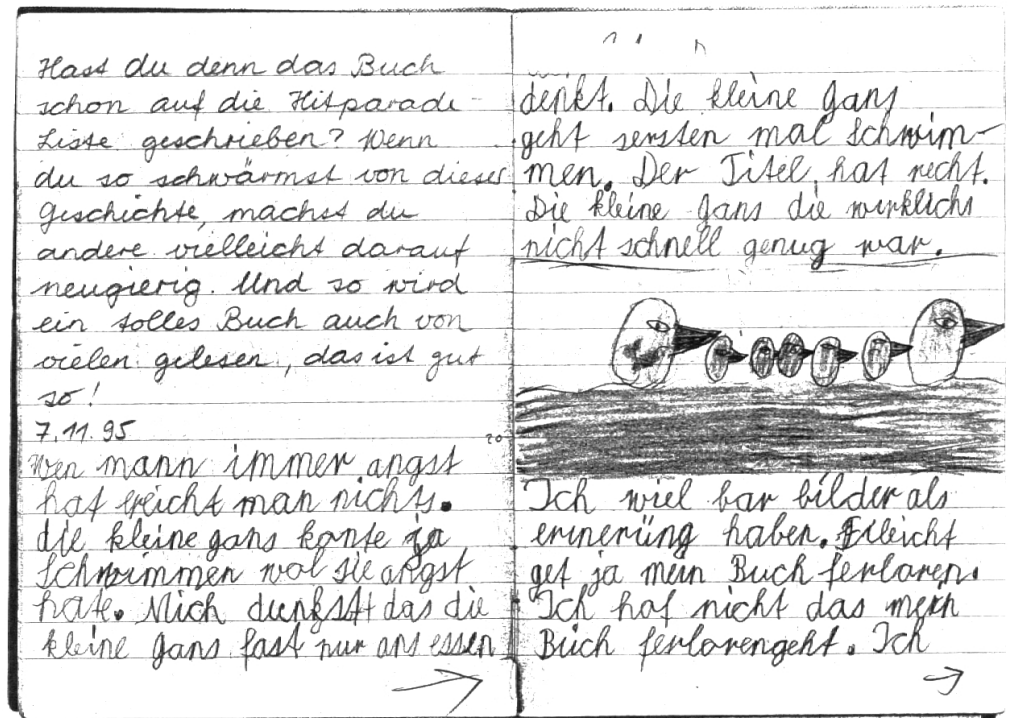 Hast du denn das Buch
schon auf die Hitparade-
Liste geschrieben? Wenn
du so schwärmst von dieser
Geschichte, machst du
andere vielleicht darauf
neugierig. Und so wird
ein tolles Buch auch von
vielen gelesen, das ist gut
so!
7.11.95
Wen mann immer angst
hat ereicht man nichts.
die kleine gans konte ja
schwimmen wol sie angst
hate. Mich dunkst das die
kleine gans fast nur ans essen
denkt. Die kleine Gans
geht sersten mal Schwim-
men. Der Titel hat recht.
Die kleine Gans die wirklichs
nicht schnell genug war.
20
Ich wiel bar bilder als
erinerüng haben. Filleicht
get ja mein Buch ferloren.
Ich hof nicht das mein
Buch ferlorengeht. Ich